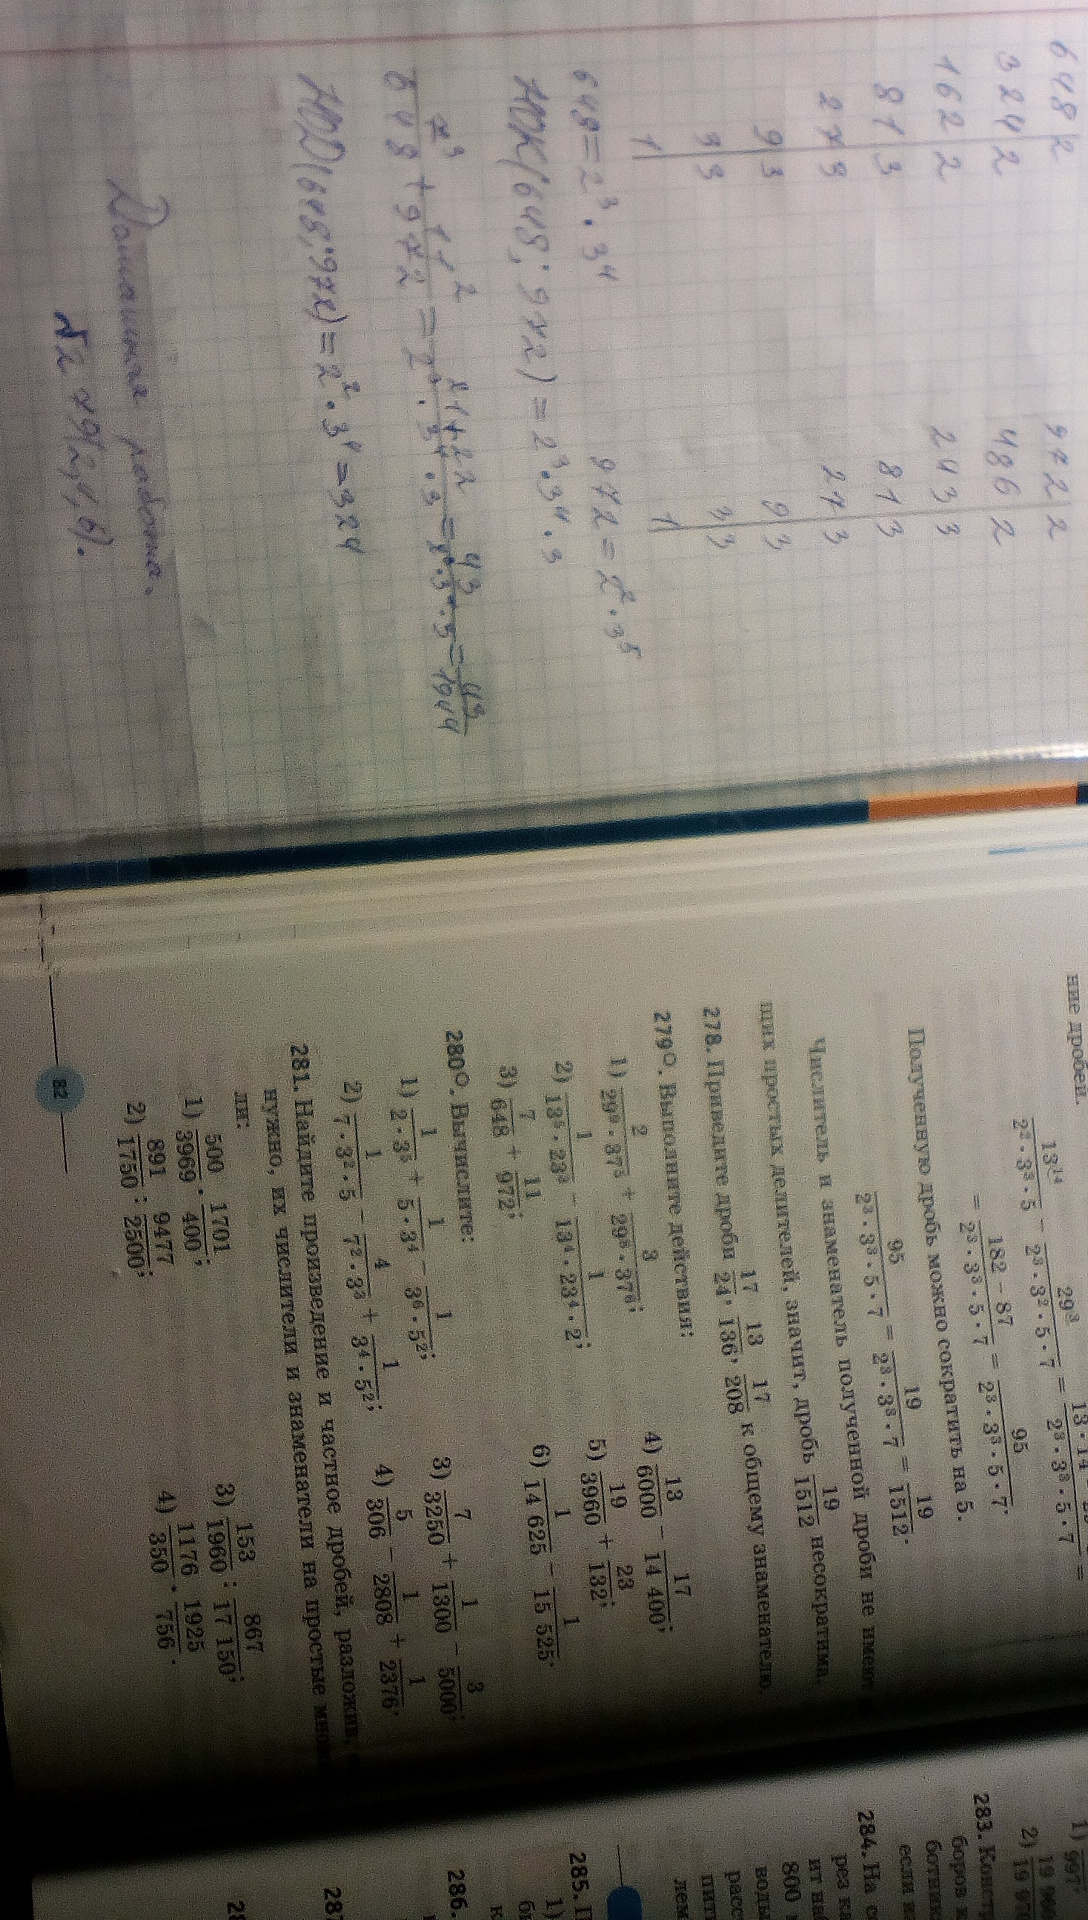 648 2
324 2
162 2
81 3
27 3
9 3
3 3
1
972 2
486 2
243 3
81 3
27 3
9 3
3 3
1
648 = 2³ · 3⁴
972 = 2² · 3⁵
НОК(648; 972) = 2³ · 3⁴ · 3
7³/648 + 11²/972 = (21+22)/(2³ · 3⁴ · 3) = 43/(2³ · 3⁴ · 3) = 43/1944
НОД(648; 972) = 2² · 3⁴ = 324
Домашняя работа.
№279(2,4,6).
ние дробей.
13\14/(2² · 3³ · 5) − 29\3/(2³ · 3² · 5 · 7) = /(2³ · 3³ · 5 · 7) =
= (182 − 87)/(2³ · 3³ · 5 · 7) = 95/(2³ · 3³ · 5 · 7).
Полученную дробь можно сократить на 5.
95/(2³ · 3³ · 5 · 7) = 19/(2³ · 3³ · 7) = 19/1512.
Числитель и знаменатель полученной дроби не имеют
щих простых делителей, значит, дробь 19/1512 несократима.
278. Приведите дроби 17/24, 13/136, 17/208 к общему знаменателю.
279○. Выполните действия:
1) 2/(29⁹ · 37⁵) + 3/(29⁸ · 37⁶);
4) 13/6000 − 17/14 400;
2) 1/(13⁵ · 23³) − 1/(13⁴ · 23⁴ · 2);
5) 19/3960 + 23/132;
3) 7/648 + 11/972;
6) 1/14 625 − 1/15 525.
280○. Вычислите:
1) 1/(2 · 3⁵) + 1/(5 · 3⁴) − 1/(3⁶ · 5²);
3) 7/3250 + 1/1300 − 3/5000;
2) 1/(7 · 3² · 5) − 4/(7² · 3³) + 1/(3⁴ · 5²);
4) 5/306 − 1/2808 + 1/2376.
281. Найдите произведение и частное дробей, разложив,
нужно, их числители и знаменатели на простые
ли:
1) 500/3969 · 1701/400;
3) 153/1960 : 867/17 150;
2) 891/1750 : 9477/2500;
4) 1176/350 · 1925/756.
82
1)
2)
283. Констр
боров
ботник
если
284. На
рез
ит на
800
воды
расс
пит
лем
285.
1)
286.